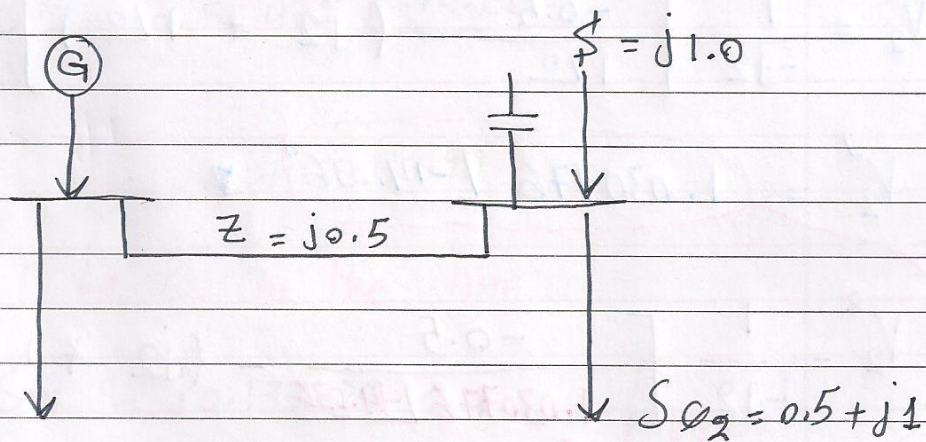 G
$ = j1.0
Z = j0.5
SD2 = 0.5 + j1